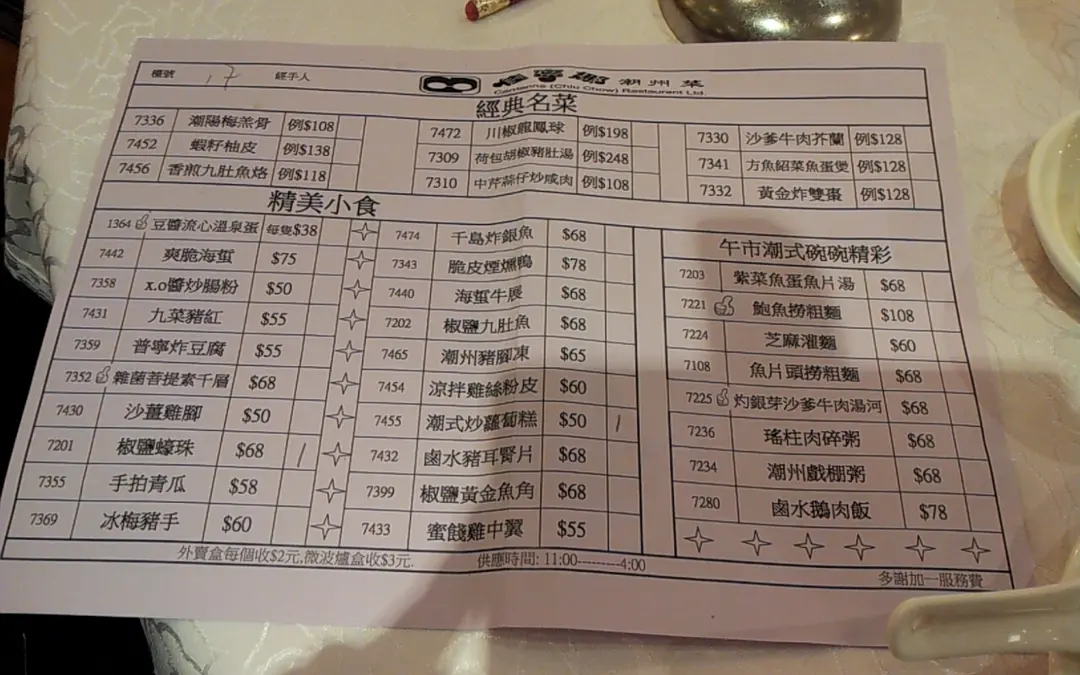 檯號 17 經手人
潮州菜
(Chiu Chow) Restaurant Ltd.
經典名菜
7336 潮陽梅羔骨 例$108
7452 蝦籽柚皮 例$138
7456 香煎九肚魚烙 例$118
7472 川椒龍鳳球 例$198
7309 荷包胡椒豬肚湯 例$248
7310 中芹蒜仔炒咸肉 例$108
7330 沙爹牛肉芥蘭 例$128
7341 方魚紹菜魚蛋煲 例$128
7332 黃金炸雙棗 例$128
精美小食
1364 豆醬流心溫泉蛋 每隻$38
7442 爽脆海蜇 $75
7358 x.o醬炒腸粉 $50
7431 九菜豬紅 $55
7359 普寧炸豆腐 $55
7352 雜菌菩提素千層 $68
7430 沙薑雞腳 $50
7201 椒鹽蠔珠 $68 /
7355 手拍青瓜 $58
7369 冰梅豬手 $60
7474 千島炸銀魚 $68
7343 脆皮煙燻鴨 $78
7440 海蜇牛展 $68
7202 椒鹽九肚魚 $68
7465 潮州豬腳凍 $65
7454 涼拌雞絲粉皮 $60
7455 潮式炒蘿蔔糕 $50 /
7432 鹵水豬耳腎片 $68
7399 椒鹽黃金魚角 $68
7433 蜜餞雞中翼 $55
午市潮式碗碗精彩
7203 紫菜魚蛋魚片湯 $68
7221 鮑魚撈粗麵 $108
7224 芝麻灌麵 $60
7108 魚片頭撈粗麵 $68
7225 灼銀芽沙爹牛肉湯河 $68
7236 瑤柱肉碎粥 $68
7234 潮州戲棚粥 $68
7280 鹵水鵝肉飯 $78
外賣盒每個收$2元,微波爐盒收$3元. 供應時間: 11:00---------4:00
多謝加一服務費